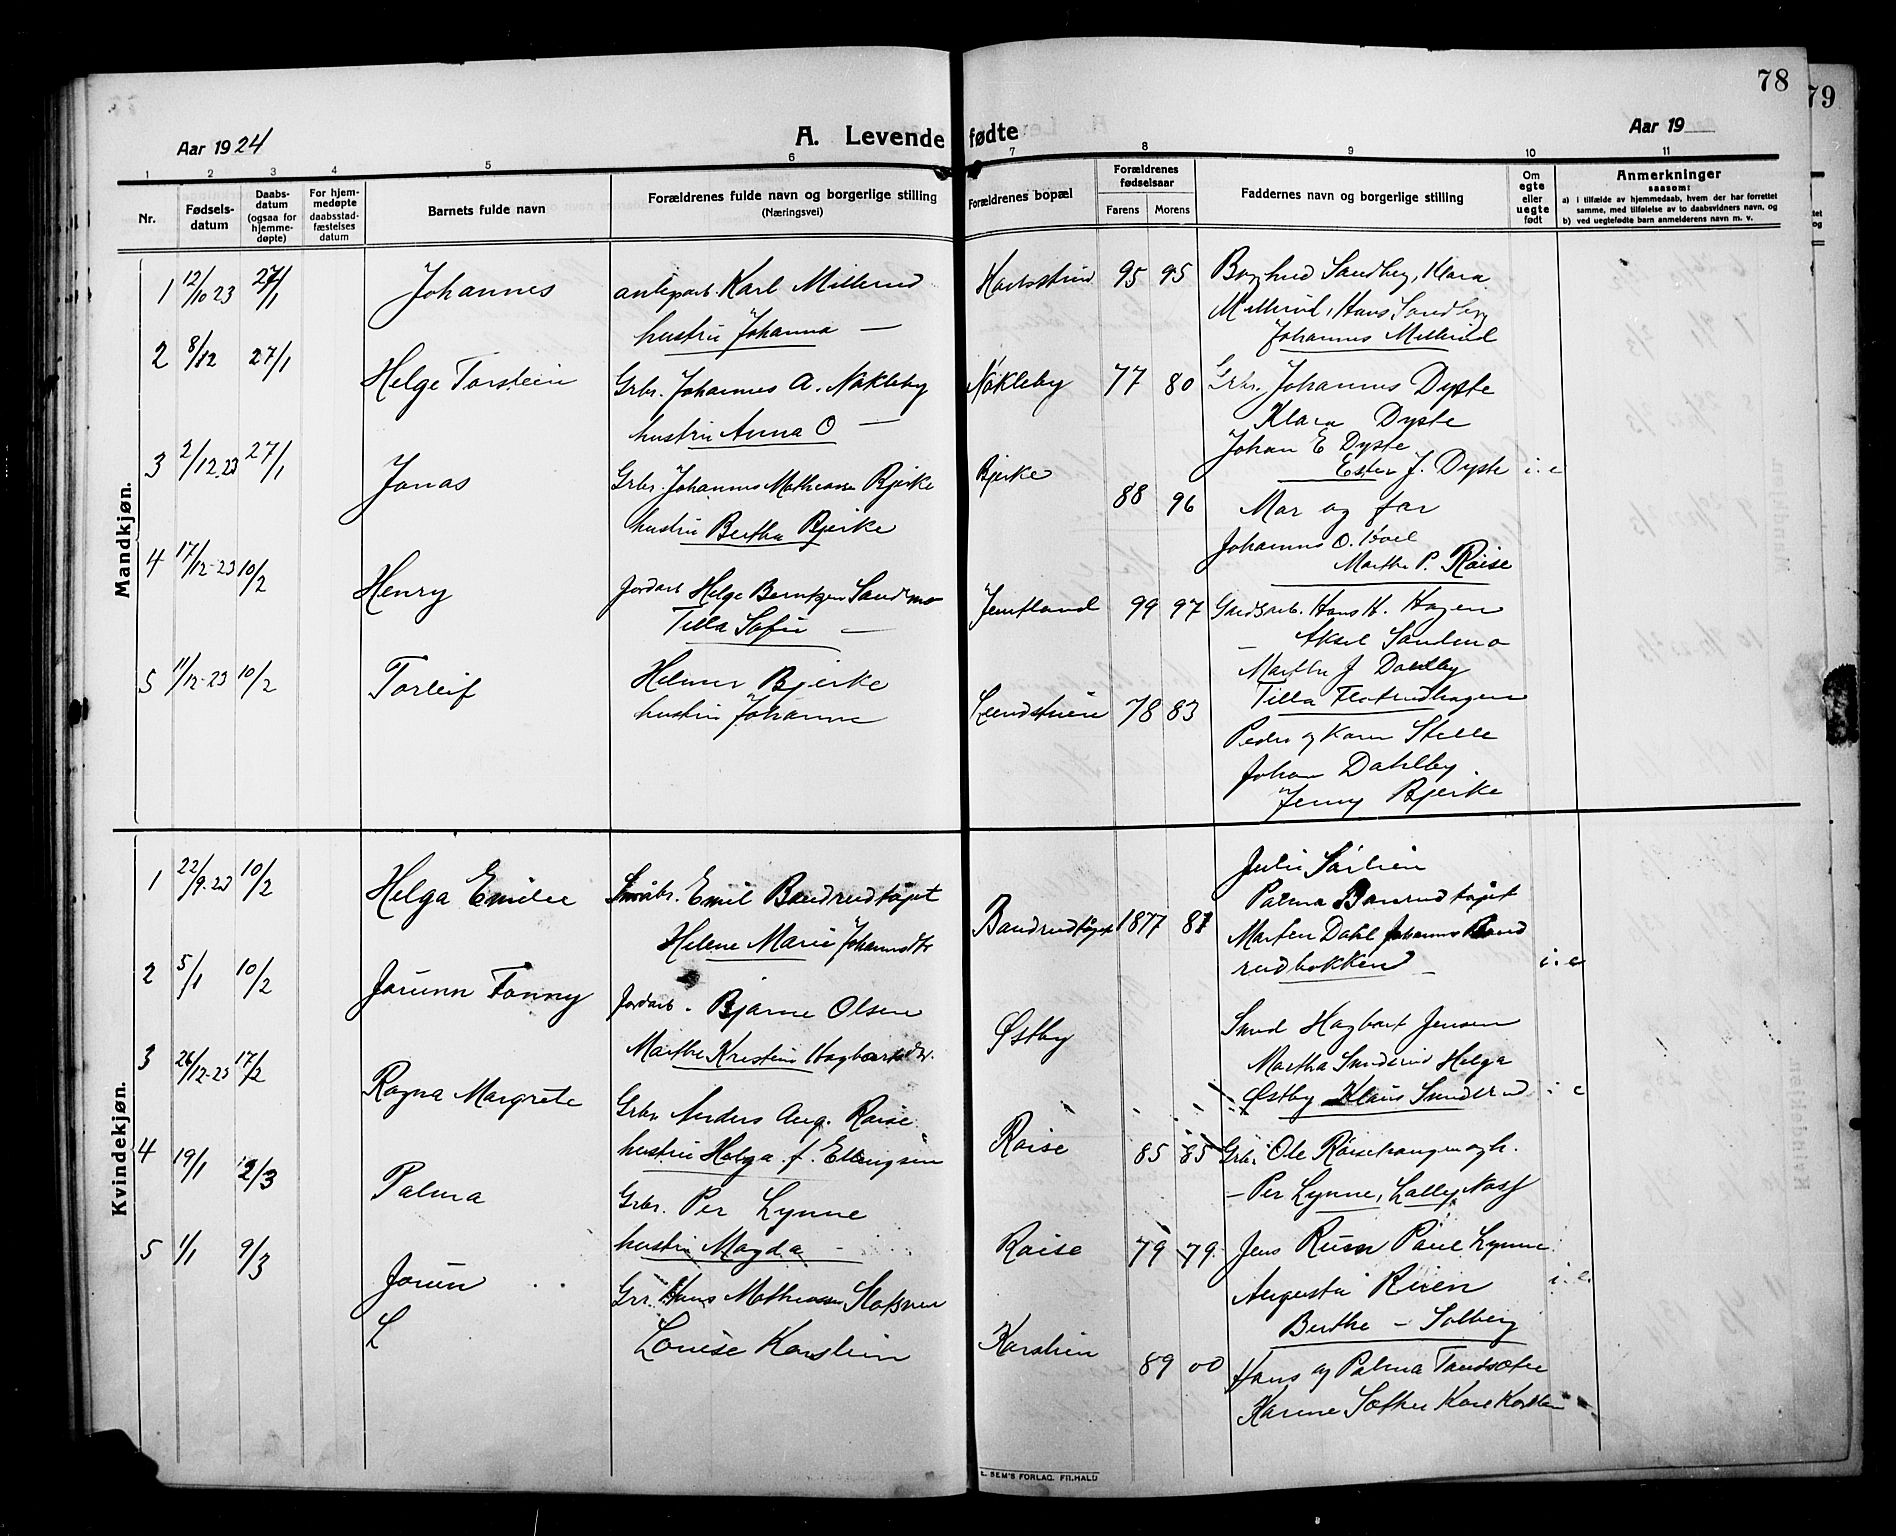 78
79
Aar 1924
A. Levende fødte
Aar 19
1 2 3 4 5 6 7 8 9 10 11
Nr.
Fødsels-
datum
Daabs-
datum
(ogsaa for
hjemme-
døpte)
For hjem-
medøpte
daabsstad-
fæstelses
datum
Barnets fulde navn
Forældrenes fulde navn og borgerlige stilling
(Næringsvei)
Forældrenes bopæl
Forældrenes
fødselsaar
Farens Morens
Faddernes navn og borgerlige stilling
Om
egte
eller
uegte
født
Anmerkninger
saasom:
a) i tilfælde av hjemmedaab, hvem der har forrettet
samme, med tilføielse av to daabsvidners navn, og
b) ved uegtefødte barn anmelderens navn m. v.
Mandkjøn.
1 12/10 23 27/1 Johannes
Karl Millerud
hustru Johanna —
95 95
Sandberg, Klara
Millerud, Hans Sandberg
Johannes Millerud
2 8/12 27/1 Helge Torstein
Grbr. Johannes A. Nøkleby
hustru Anna O —
Nøkleby 77 80
Grbr. Johannes Dyste
Klara Dyste
Johan E Dyste
Ester J. Dyste i. e
3 2/12 23 27/1 Jonas
Grbr. Johannes Mathiasen Bjerke
hustru Bertha Bjerke
Bjerke 88 96
Mor og far
Johannes O.
Marthe P. Røise
4 17/12-23 10/2 Henry
Jordarb Helge Berntzen Sandmo
Tilla Sofie —
Jemtland 99 97
Hans H. Hagen
— Aksel Sandmo
Marthe J Dahlby
Tilla Flatrudhagen
5 11/12-23 10/2 Torleif
Helmer Bjerke
hustru Johanne
78 83
Peder og Karen Stelle
Johan Dahlby
Jenny Bjerke
Kvindekjøn.
1 22/9-23 10/2 Helga Emilie
Småbr. Emil Baudrudtøpet
Helene Marie Johannsdtr
Baudrudtøpet 1877 81
Julie Sørlien
Palma Baurudtøpet
Marten Dahl Johannes Baud
rudbakken — i. e
2 5/1 10/2 Jorunn Fanny
Jordarb. Bjarne Olsen
Marthe Kristine Hagbartsdtr.
Østby
Hagbart Jensen
Martha Sunderud Helga
Østby Klaus Sunderud i e
3 26/12-23 17/2 Ragna Margrete
Grbr Anders Aug. Røise
hustru Helga f. Ellingsen
Røise 85 85
Grbr. Ole Røisehaugen og h.
— Per Lynne, Lally Næss
4 19/1 2/3 Palma
Grbr. Per Lynne
hustru Magda —
Røise 79 79
Jens Ruen Paul Lynne
Augusta Ruen
Berthe — Solberg i. e.
5 1/1 9/3 Jorun
L
Hans Mathiasen
Louise Karslien
Karslien 89 00
Hans og Palma Tandsæter
Karine Sæther Kari Karslien
E. SEM'S FORLAG. FR.HALD